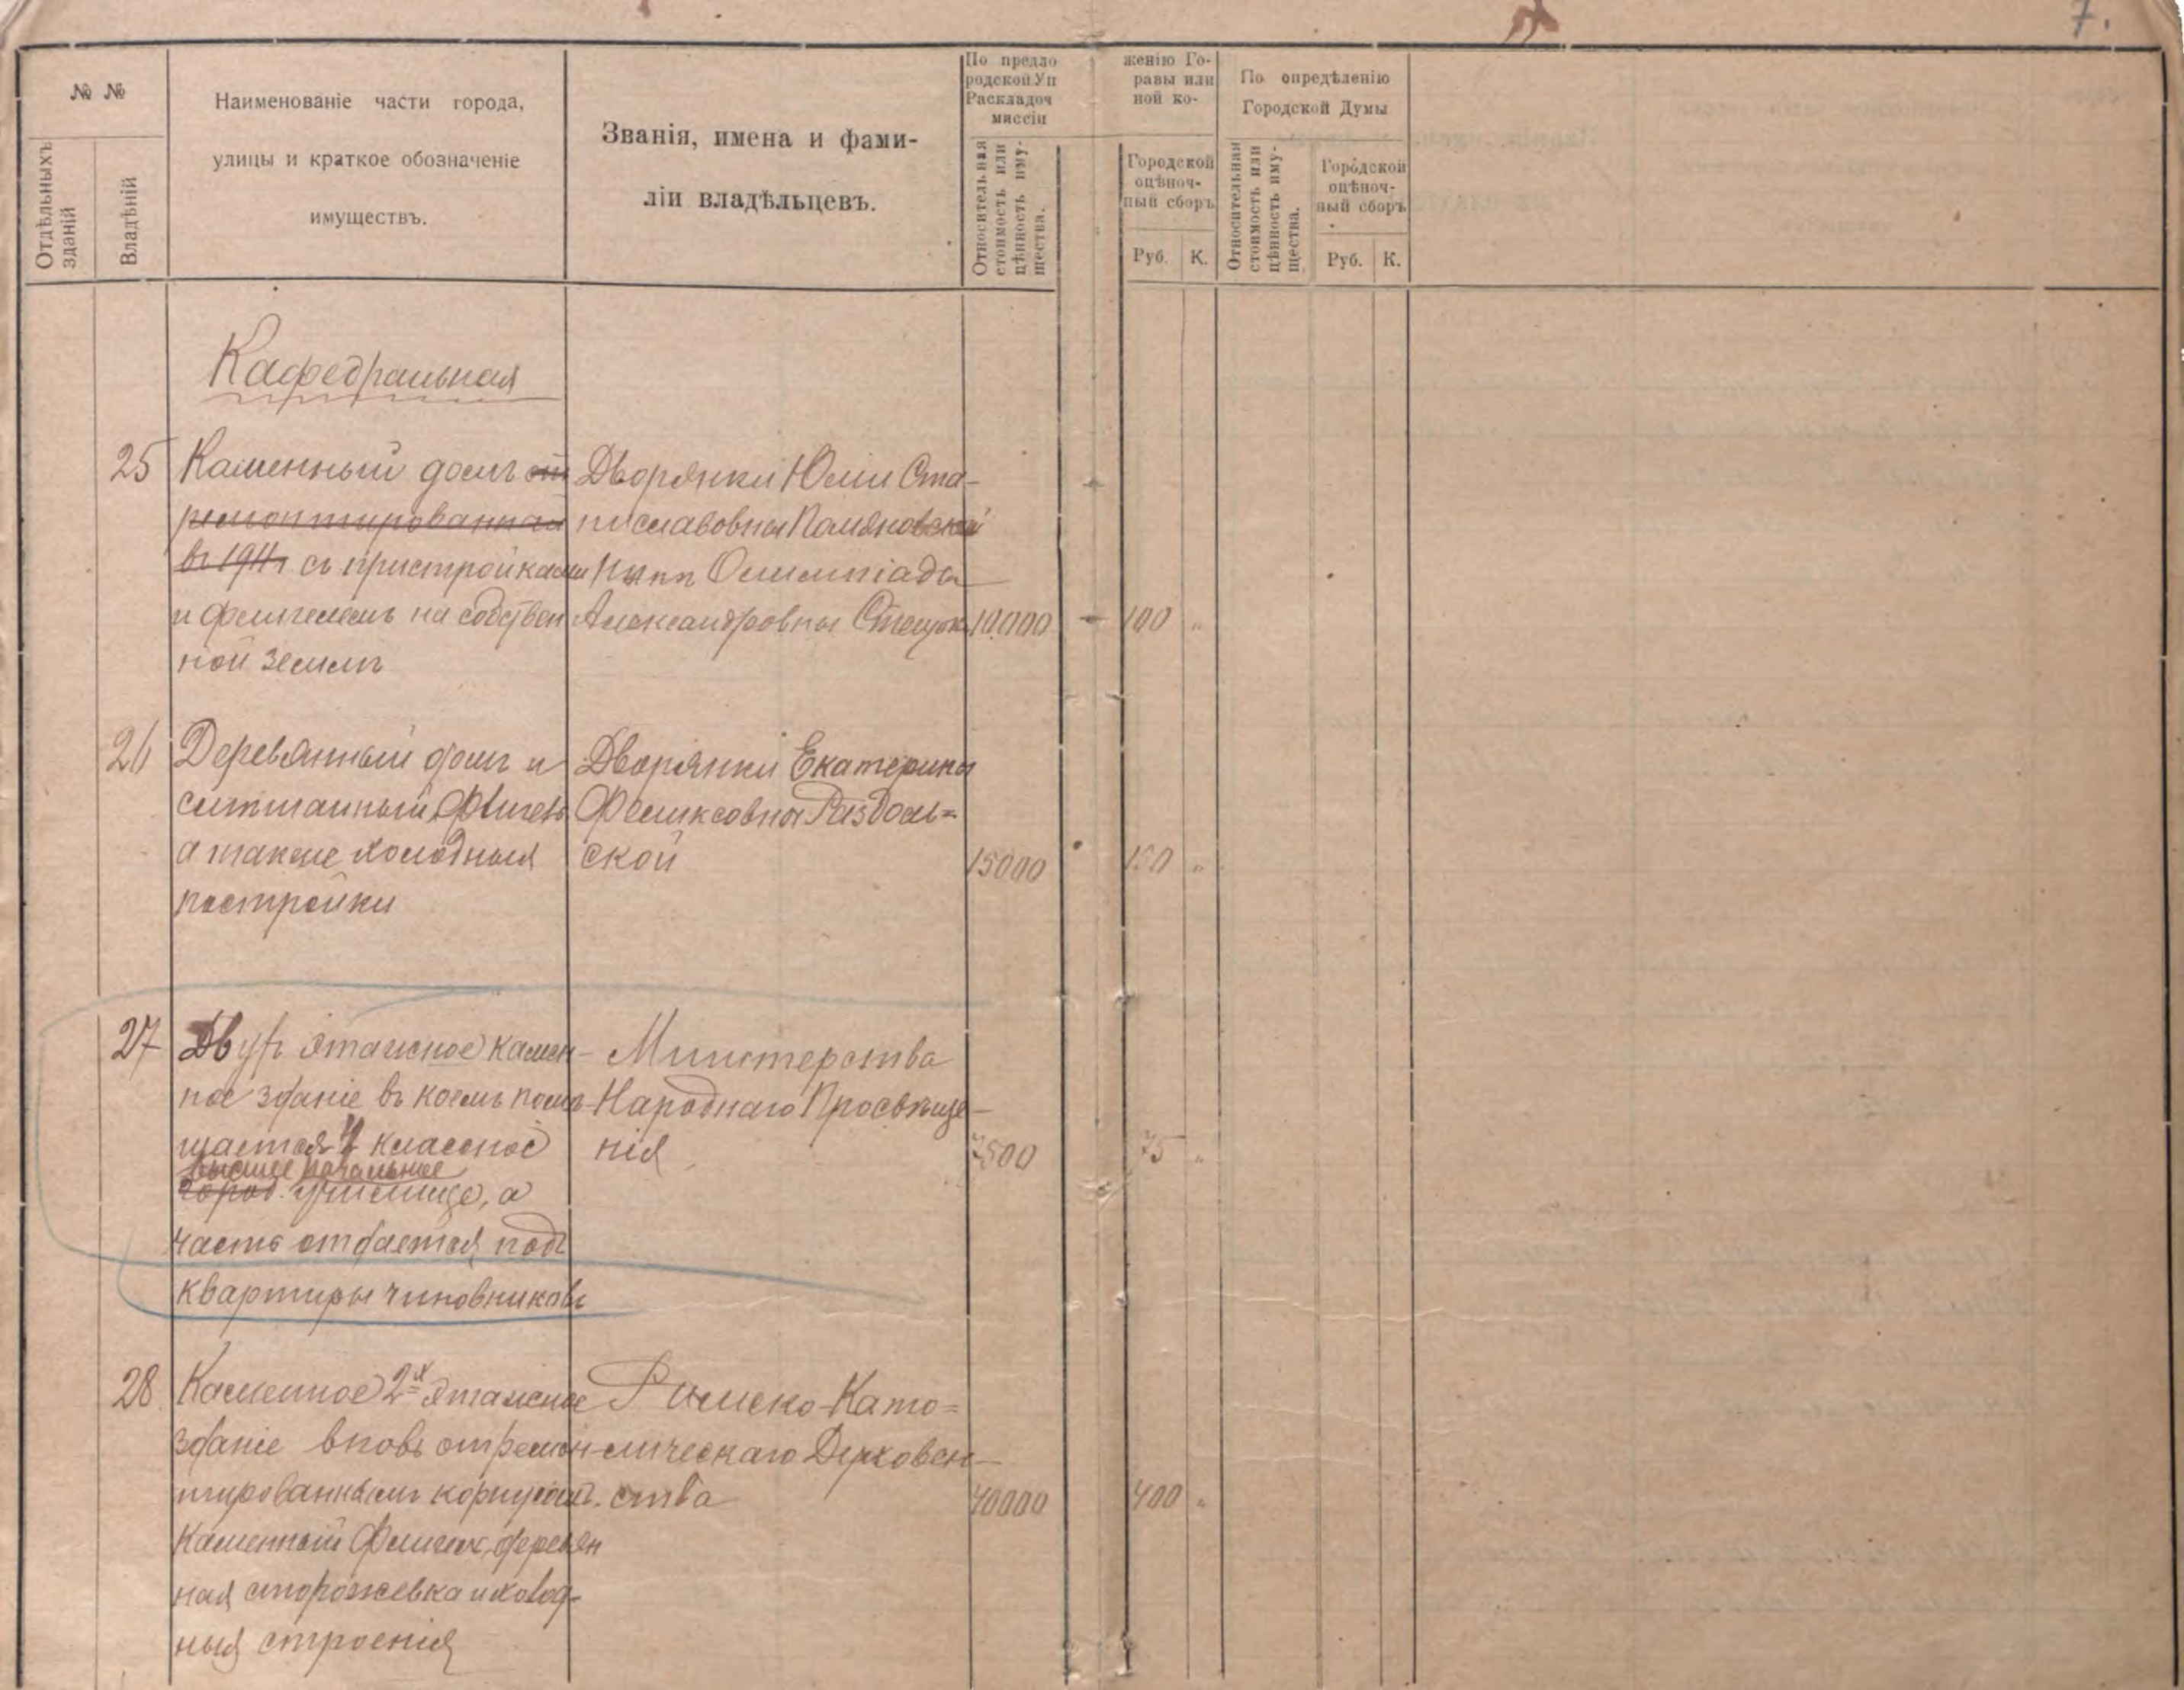 7.
№ №
Отдѣльныхъ
зданій
Владѣній
Наименованіе части города,
улицы и краткое обозначеніе
имуществъ.
Званія, имена и фами-
ліи владѣльцевъ.
По предло женію Го-
родской Уп равы или
Раскладоч ной ко-
миссіи
Относительная
стоимость или
цѣнность иму-
щества.
Городской
оцѣноч-
ный сборъ
Руб. К.
По опредѣленію
Городской Думы
Относительная
стоимость или
цѣнность иму-
щества.
Городской
оцѣноч-
ный сборъ
Руб. К.
Кафедральная
25 Каменный домъ от
ремонтированный
въ 1911г съ пристройками
и флигелемъ на собствен
ной землѣ
Дворянки Юліи Ста-
ниславовны
нынѣ Олимпіады
Александровны
10000 100 "
26 Деревянный домъ и
смѣшанный флигель
а также холодныя
постройки
Дворянки Екатерины
Феликсовны Раздоль=
ской
15000 150 "
27 Двухъ этажное камен-
ное зданіе въ коемъ помѣ-
щается 4 классное
высшее начальное
город. училище, а
часть отдается подъ
квартиры чиновниковъ
Министерства
Народнаго Просвѣще-
нія
7500 75 "
28 Каменное 2х этажное
зданіе вновь отремон-
тированнымъ корпусомъ.
Каменный флигель, деревян
ная сторожевка и холод-
ныя строенія
Римско-Като=
лическаго Духовен-
ства
40000 400 "